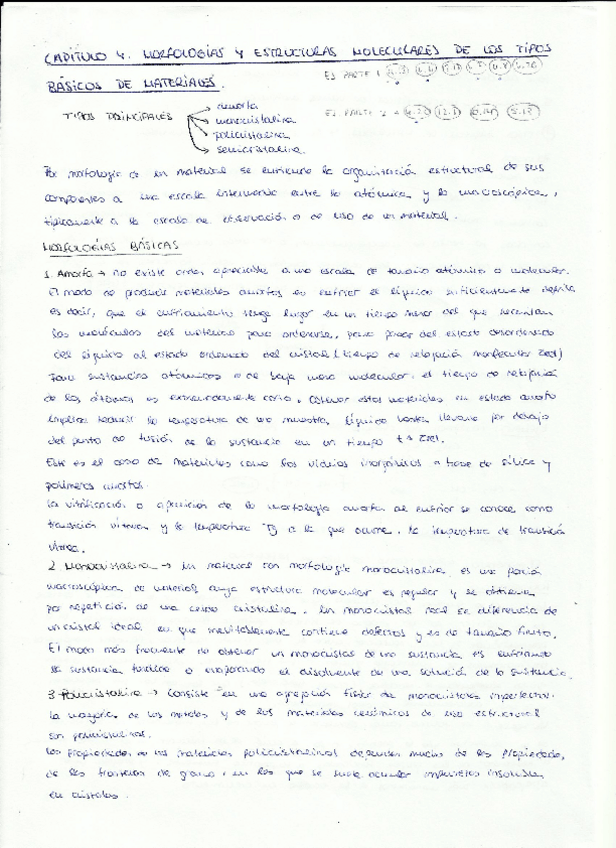 CAPÍTULO 4. MORFOLOGÍAS Y ESTRUCTURAS MOLECULARES DE LOS TIPOS
BÁSICOS DE MATERIALES.
EJ PARTE 1
TIPOS PRINCIPALES
amorfa
monocristalina
policristalina
semicristalina
EJ PARTE 2
Por morfología de un material se entiende la organización estructural de sus
componentes a una escala intermedia entre la atómica y la macroscópica,
típicamente a la escala de observación o de uso de un material.
MORFOLOGÍAS BÁSICAS
1. Amorfa → no existe orden apreciable a una escala de tamaño atómico o molecular.
El modo de producir materiales amorfos es enfriar el líquido suficientemente rápido
es decir, que el enfriamiento tenga lugar en un tiempo menor del que necesitan
las moléculas del material para ordenarse, para pasar del estado desordenado
del líquido al estado ordenado del cristal (tiempo de relajación molecular)
Para sustancias atómicas o de baja masa molecular, el tiempo de relajación
de los átomos es extremadamente corto. Obtener estos materiales en estado amorfo
implica reducir la temperatura de una muestra líquida hasta llevarla por debajo
del punto de fusión de la sustancia en un tiempo
Este es el caso de materiales como los vidrios inorgánicos a base de sílice y
polímeros amorfos.
La vitrificación o aparición de la morfología amorfa al enfriar se conoce como
transición vítrea y la temperatura Tg a la que ocurre, la temperatura de transición
vítrea.
2. Monocristalina → Un material con morfología monocristalina es una porción
macroscópica de material cuya estructura molecular es regular y se obtiene
por repetición de una celda cristalina. Un monocristal real se diferencia de
un cristal ideal en que inevitablemente contiene defectos y es de tamaño finito.
El modo más frecuente de obtener un monocristal de una sustancia es enfriando
la sustancia fundida o evaporando el disolvente de una solución de la sustancia.
3. Policristalina → Consiste en una agregación física de monocristales imperfectos.
La mayoría de los metales y de los materiales cerámicos de uso estructural
son policristalinos.
Las propiedades de los materiales policristalinos dependen mucho de las propiedades
de las fronteras de grano, en las que se suele acumular impurezas insolubles
en cristales.